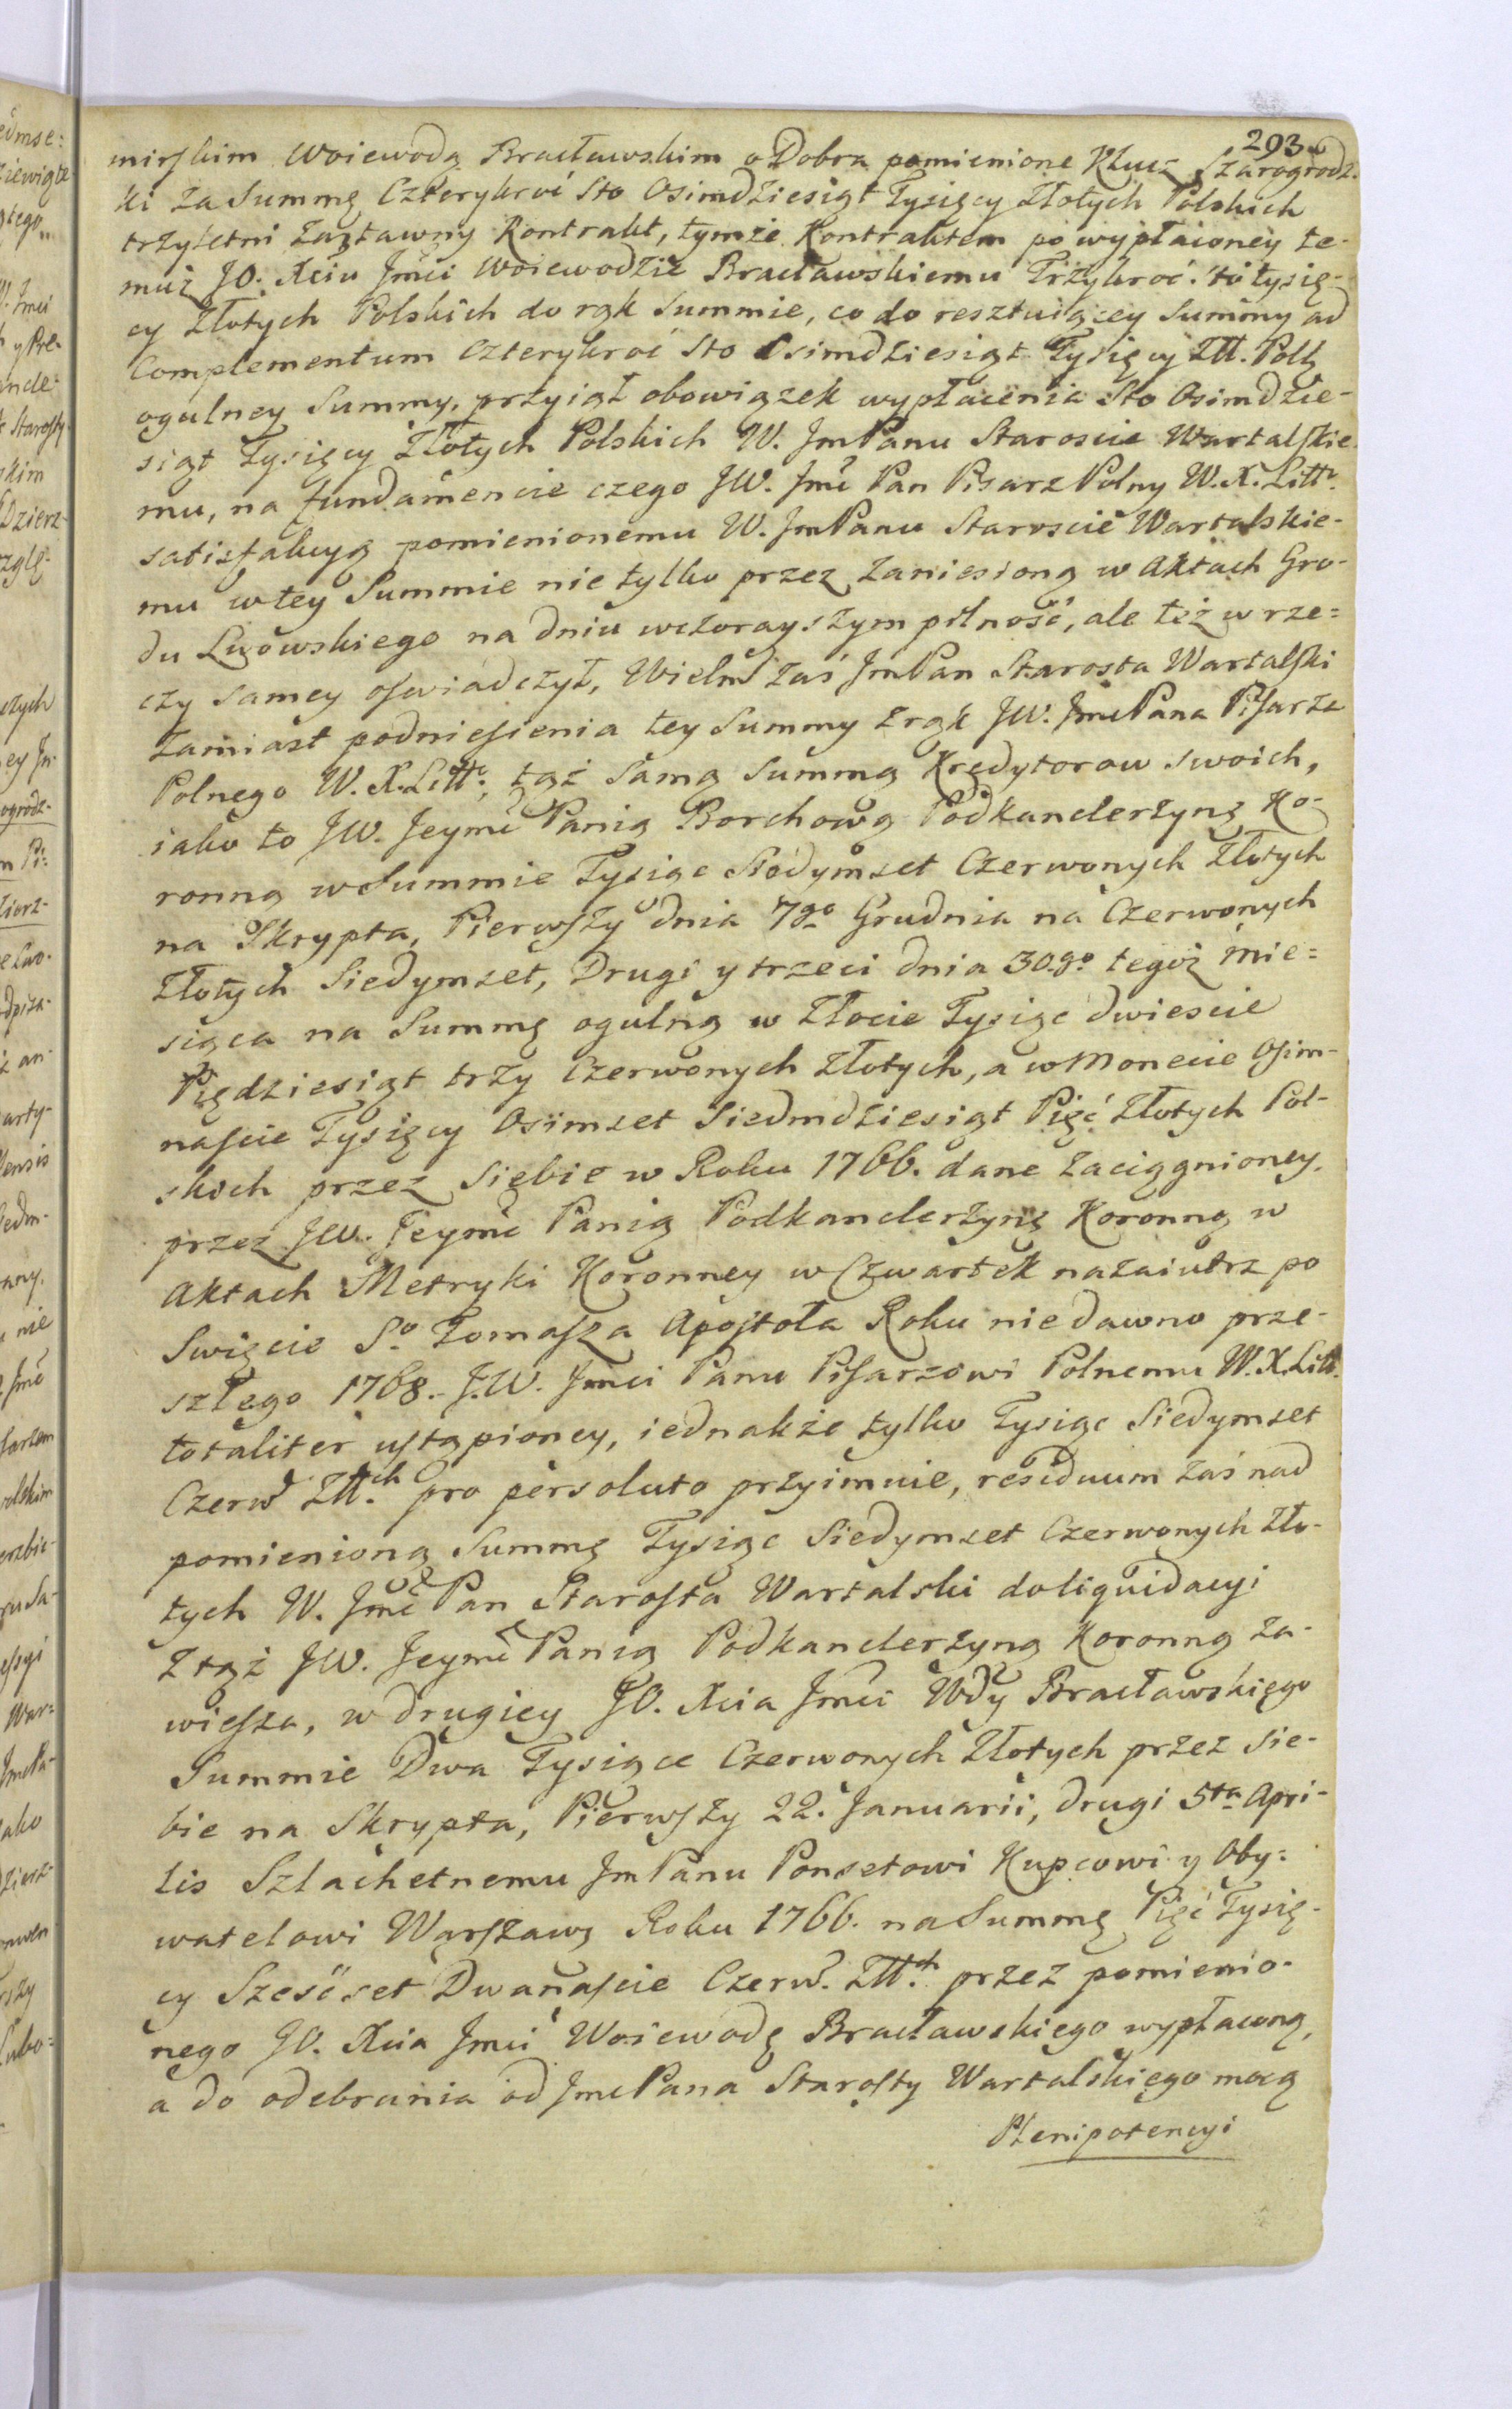 293
mirskim Woiewodą Bracławskim o Dobra pomienione Klucz Szarogrodz-
ki za Summę Czterykroć Sto Osimdziesiąt Tysięcy Złotych Polskich
trzyletni Zastawny Kontrakt, tymże Kontraktem po wypłaconey te-
muż JO. Xciu Jmci Woiewodzie Bracławskiemu Trzykroć sto tysię-
cy Złotych Polskich do rąk Summie, co do resztuiącey Summy ad
Complementum Czterykroć Sto Osimdziesiąt Tysięcy Złł. Pols
ogulney Summy, przyiął obowiązek wypłacenia Sto Osimdzie-
siąt Tysięcy Złotych Polskich W. JmPanu Staroscie Wartalskie-
mu, na fundamencie czego JW. Jmć Pan Pisarz Polny W. X. Litt.
satisfakcyą pomienionemu W. JmPanu Staroscie Wartalskie-
mu w tey Summie nie tylko przez zaniesioną w Aktach Gro-
du Lwowskiego na dniu wczorayszym pilność, ale też w rze=
czy samey oswiadczył, Wielm zaś JmPan Starosta Wartalski
zamiast podniesienia tey Summy z rąk JW. JmcPana Pisarza
Polnego W. X. Litt., tąż samą Summą Kredytorow swoich,
iako to JW. Jeymć Panią Borchową Podkanclerzynę Ko-
ronną w Summie Tysiąc Siedymset Czerwonych Złotych
na Skrypta, Pierwszy dnia 7go Grudnia na Czerwonych
Złotych Siedymset, Drugi y trzeci dnia 30.go tegoż mie=
siąca na Summę ogulną w Złocie Tysiąc dwiescie
Pięдziesiąt trzy Czerwonych Złotych, a w Monecie Osim-
nascie Tysięcy Osimset Siedmdziesiąt Pięć Złotych Pol-
skich przez Siebie w Roku 1766. dane zaciągnioney,
przez JW. Jeymć Panią Podkanclerzynę Koronną w
Aktach Metryki Koronney w Czwartek nazaiutrz po
Swięcie So Tomasza Apostoła Roku niedawno prze-
szłego 1768. J.W. Jmci Panu Pisarzowi Polnemu W. X. Litt.
totaliter ustąpioney, iednakże tylko Tysiąc Siedymset
Czerw Złł.ch pro persoluto przyimuie, residuum zaś nad
pomienioną Summę Tysiąc Siedymset Czerwonych Zło-
tych W. Jmć Pan Starosta Wartalski do liquidacyi
z tąż JW. Jeymć Panią Podkanclerzyną Koronną za-
wiesza, w drugiey JO. Xcia Jmci Wdy Bracławskiego
Summie Dwa Tysiące Czerwonych Złotych przez Sie-
bie na Skrypta, Pierwszy 22. Januarii, drugi 5ta Apri-
lis Szlachetnemu JmPanu Ponsetowi Kupcowi y Oby=
watelowi Warszawy Roku 1766. na Summę Pięć Tysię-
cy Sześćset Dwanascie Czerw. Złł.ch przez pomienio-
nego JO. Xcia Jmci Woiewodę Bracławskiego wypłaconą,
a do odebrania od JmcPana Starosty Wartalskiego mocą
Plenipotencyi